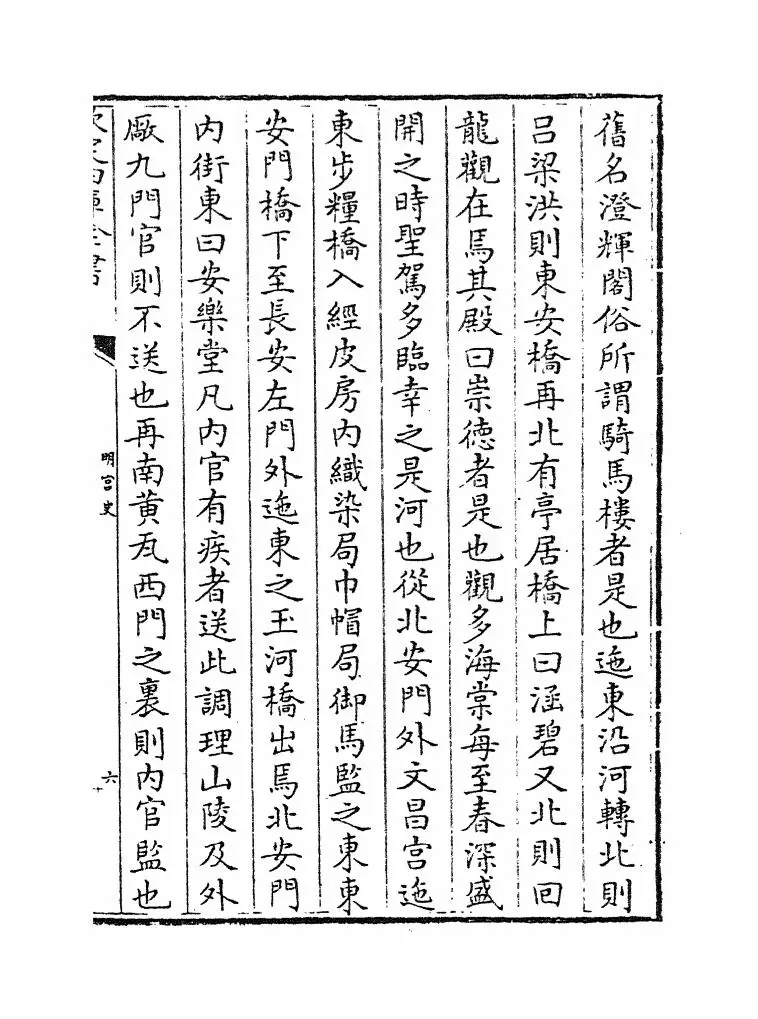 舊名澄輝閣俗所謂騎馬樓者是也迤東沿河轉北則
吕梁洪則東安橋再北有亭居橋上曰涵碧又北則回
龍觀在焉其殿曰崇德者是也觀多海棠每至春深盛
開之時聖駕多臨幸之是河也從北安門外文昌宫迤
東步糧橋入經皮房内織染局巾帽局御馬監之東東
安門橋下至長安左門外迤東之玉河橋出焉北安門
内街東曰安樂堂凡内官有疾者送此調理山陵及外
厰九門官則不送也再南黄瓦西門之裏則内官監也
欽定四庫全書
明宫史
六